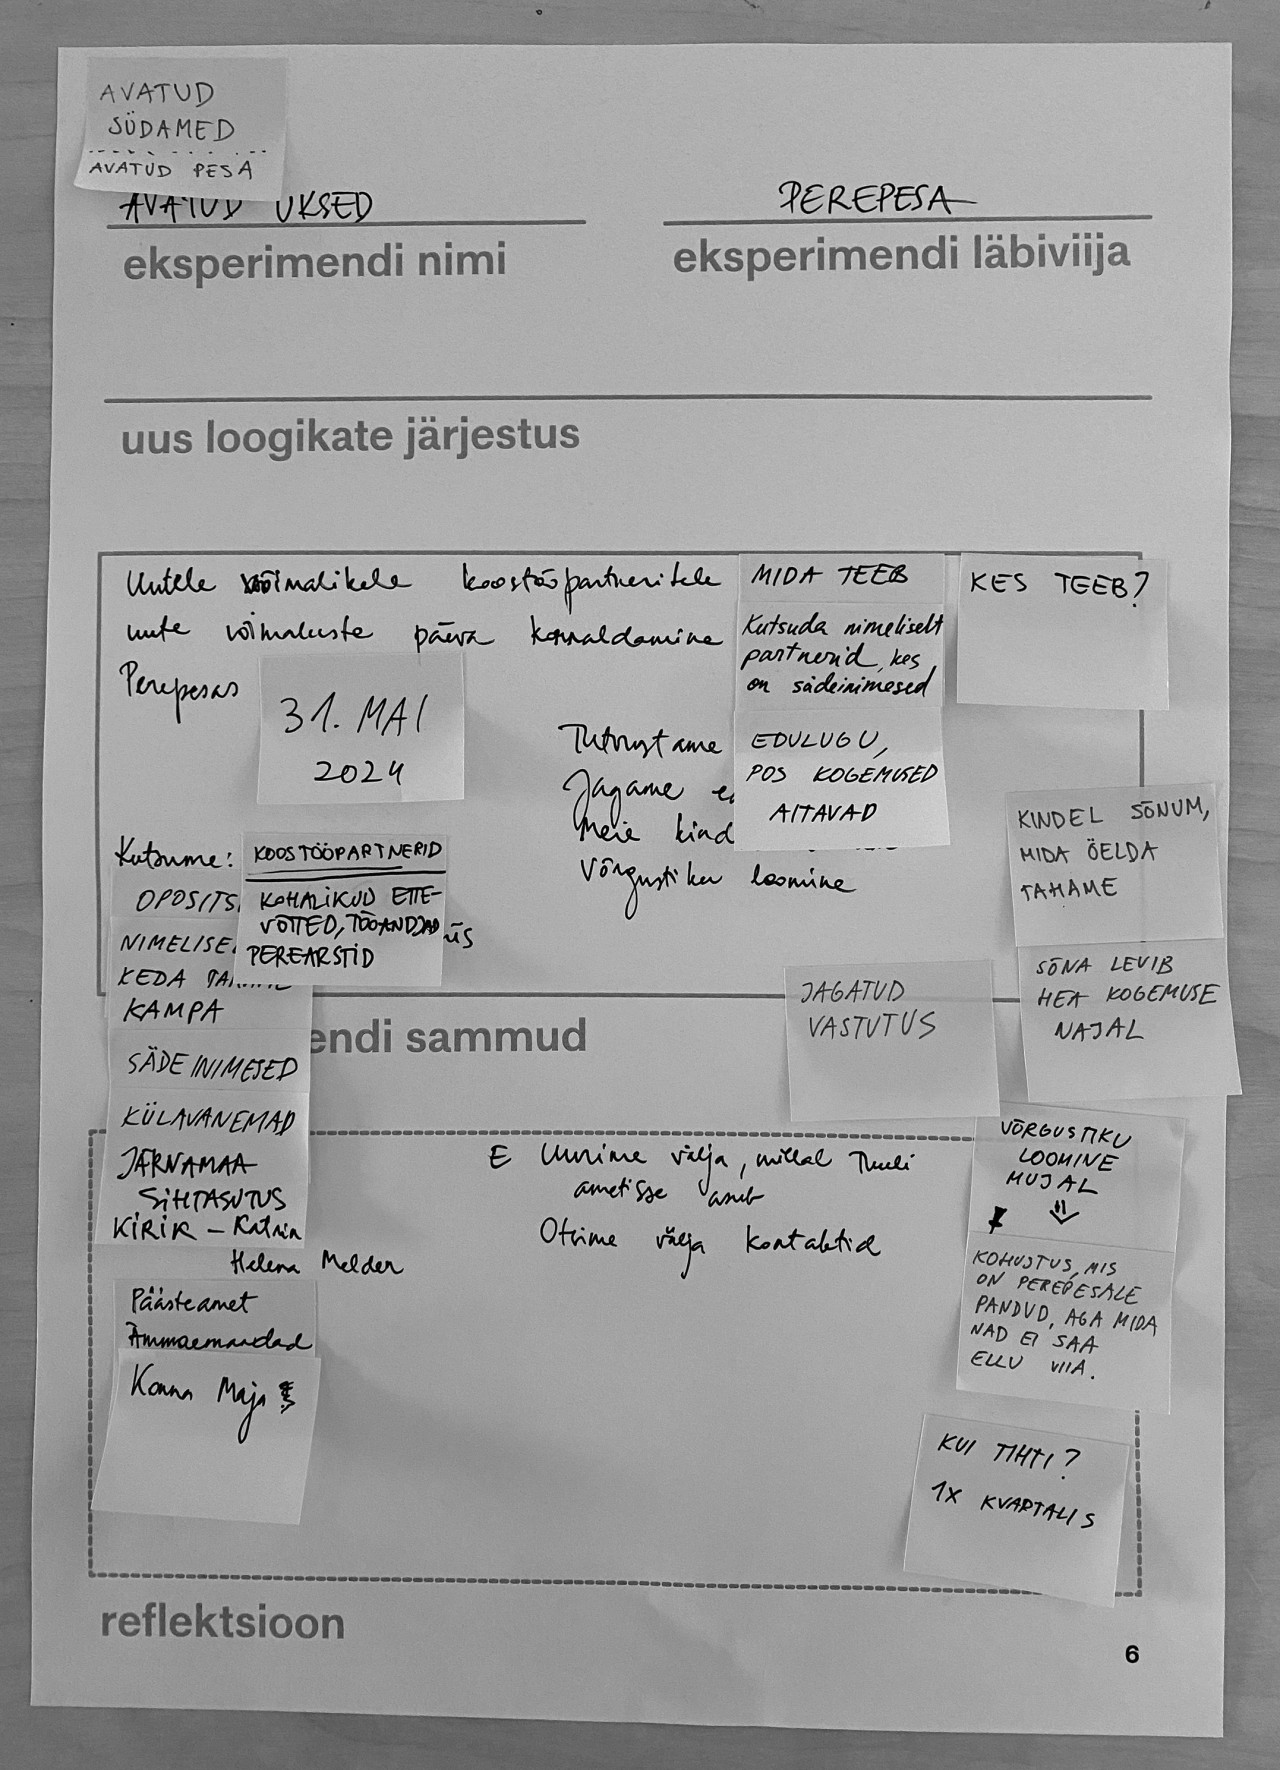 AVATUD
SÜDAMED
AVATUD PESA
AVATUD UKSED
PEREPESA
eksperimendi nimi
eksperimendi läbiviija
uus loogikate järjestus
Uutele võimalikele koostööpartneritele
uute võimaluste päeva korraldamine
Perepesas
31. MAI
2024
MIDA TEEB
Kutsuda nimeliselt
partnerid, kes
on sädeinimesed
KES TEEB?
Tutvustame
Jagame
Meie kind
Võrgustiku loomine
EDULUGU,
POS KOGEMUSED
AITAVAD
KINDEL SÕNUM,
MIDA ÖELDA
TAHAME
SÕNA LEVIB
HEA KOGEMUSE
NAJAL
Kutsume:
OPOSITS
NIMELISE
KEDA
KAMPA
KOOSTÖÖPARTNERID
KOHALIKUD ETTE-
VÕTTED, TÖÖANDJAD
PEREARSTID
SÄDEINIMESED
KÜLAVANEMAD
JÄRVAMAA
SIHTASUTUS
KIRIK – Katrin
Helena Melder
Päästeamet
Ämmaemandad
Konna Maja
endi sammud
JAGATUD
VASTUTUS
E Uurime välja, millal Tuuli
ametisse asub
Otsime välja kontaktid
VÕRGUSTIKU
LOOMINE
MUJAL
KOHUSTUS, MIS
ON PEREPESALE
PANDUD, AGA MIDA
NAD EI SAA
ELLU VIIA.
KUI TIHTI?
1X KVARTALIS
reflektsioon
6